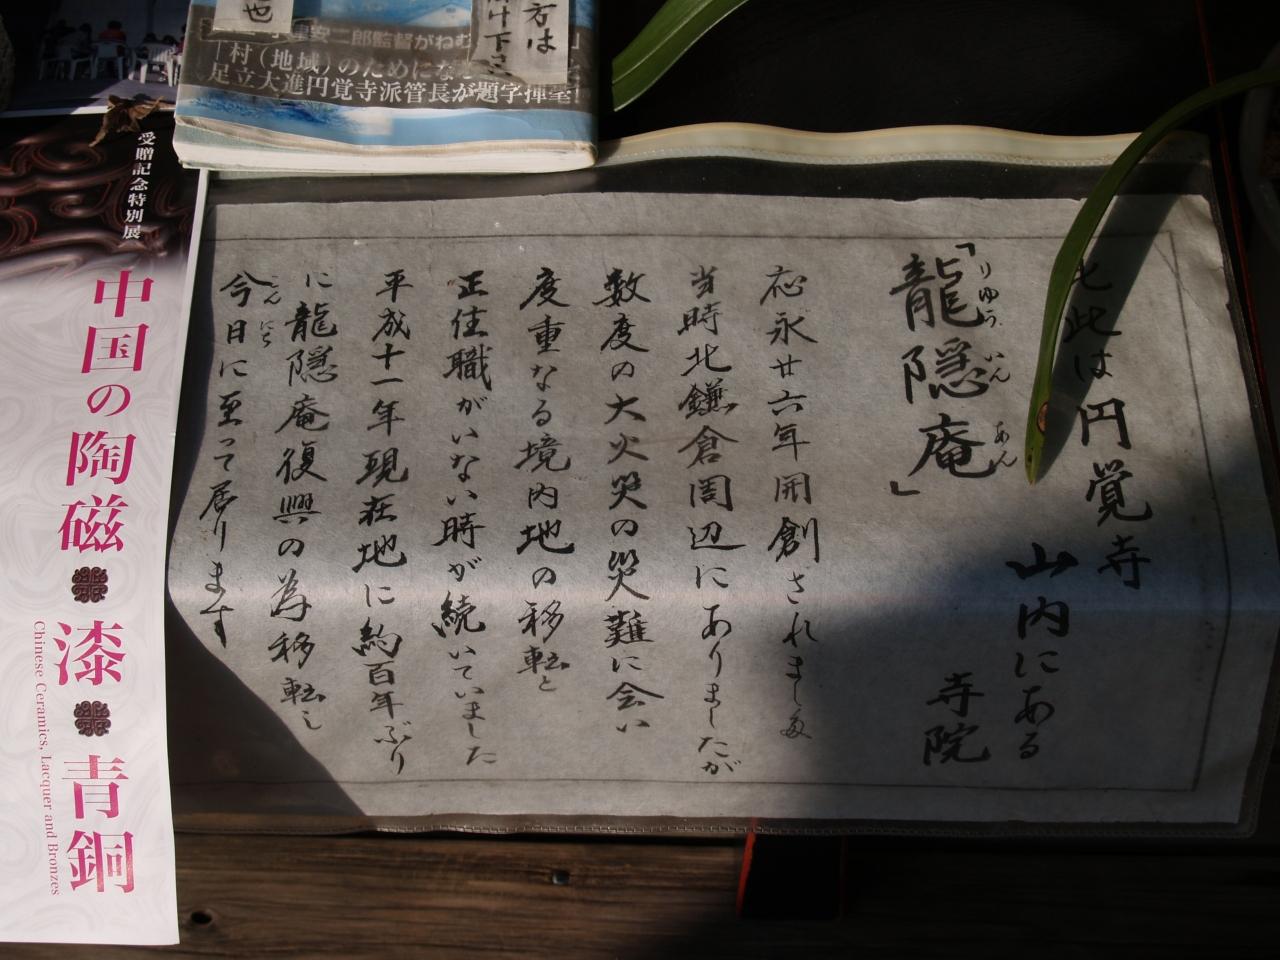 也
方は
掛け下さい
「村（地域）のためにな
足立大進円覚寺派管長が題字揮毫
受贈記念特別展
中国の陶磁 漆 青銅
Chinese Ceramics, Lacquer and Bronzes
此は円覚寺
山内にある
寺院
「龍隠庵」
りゅう いん あん
応永廿六年開創されました
当時北鎌倉周辺にありましたが
数度の大火災の災難に会い
度重なる境内地の移転と
正住職がいない時が続いていました
平成十一年現在地に約百年ぶり
に龍隠庵復興の為移転し
今日に至って居ります
こん にち